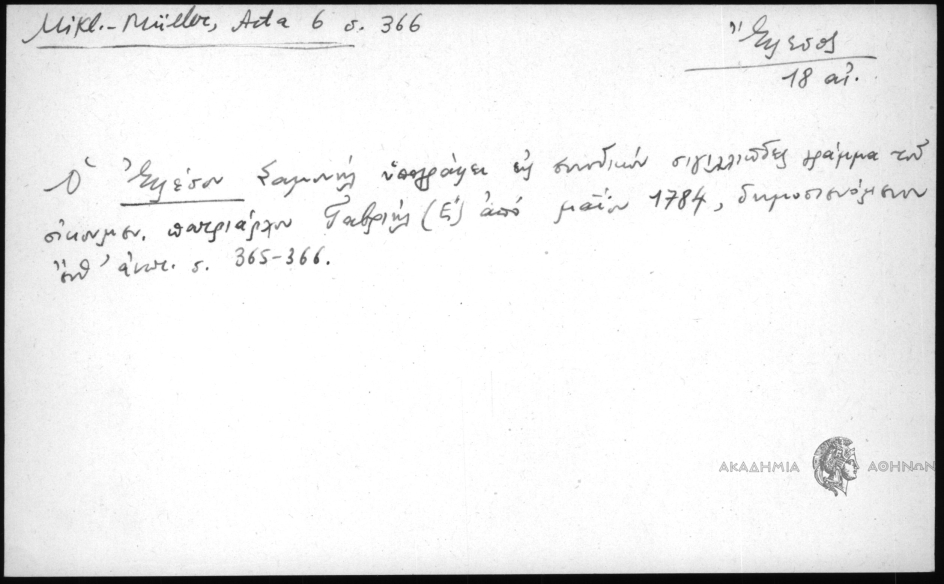 Mikl.-Müller, Acta 6 σ. 366
Ἔφεσος
18 αἰ.
Ὁ Ἐφέσου Σαμουήλ ὑπογράφει εἰς συνοδικόν σιγιλλιῶδες γράμμα τοῦ
οἰκουμεν. πατριάρχου Γαβριήλ (Ε') ἀπό μαΐου 1784, δημοσιευόμενον
ἐνθ' ἀνωτ. σ. 365-366.
ΑΚΑΔΗΜΙΑ ΑΘΗΝΩΝ